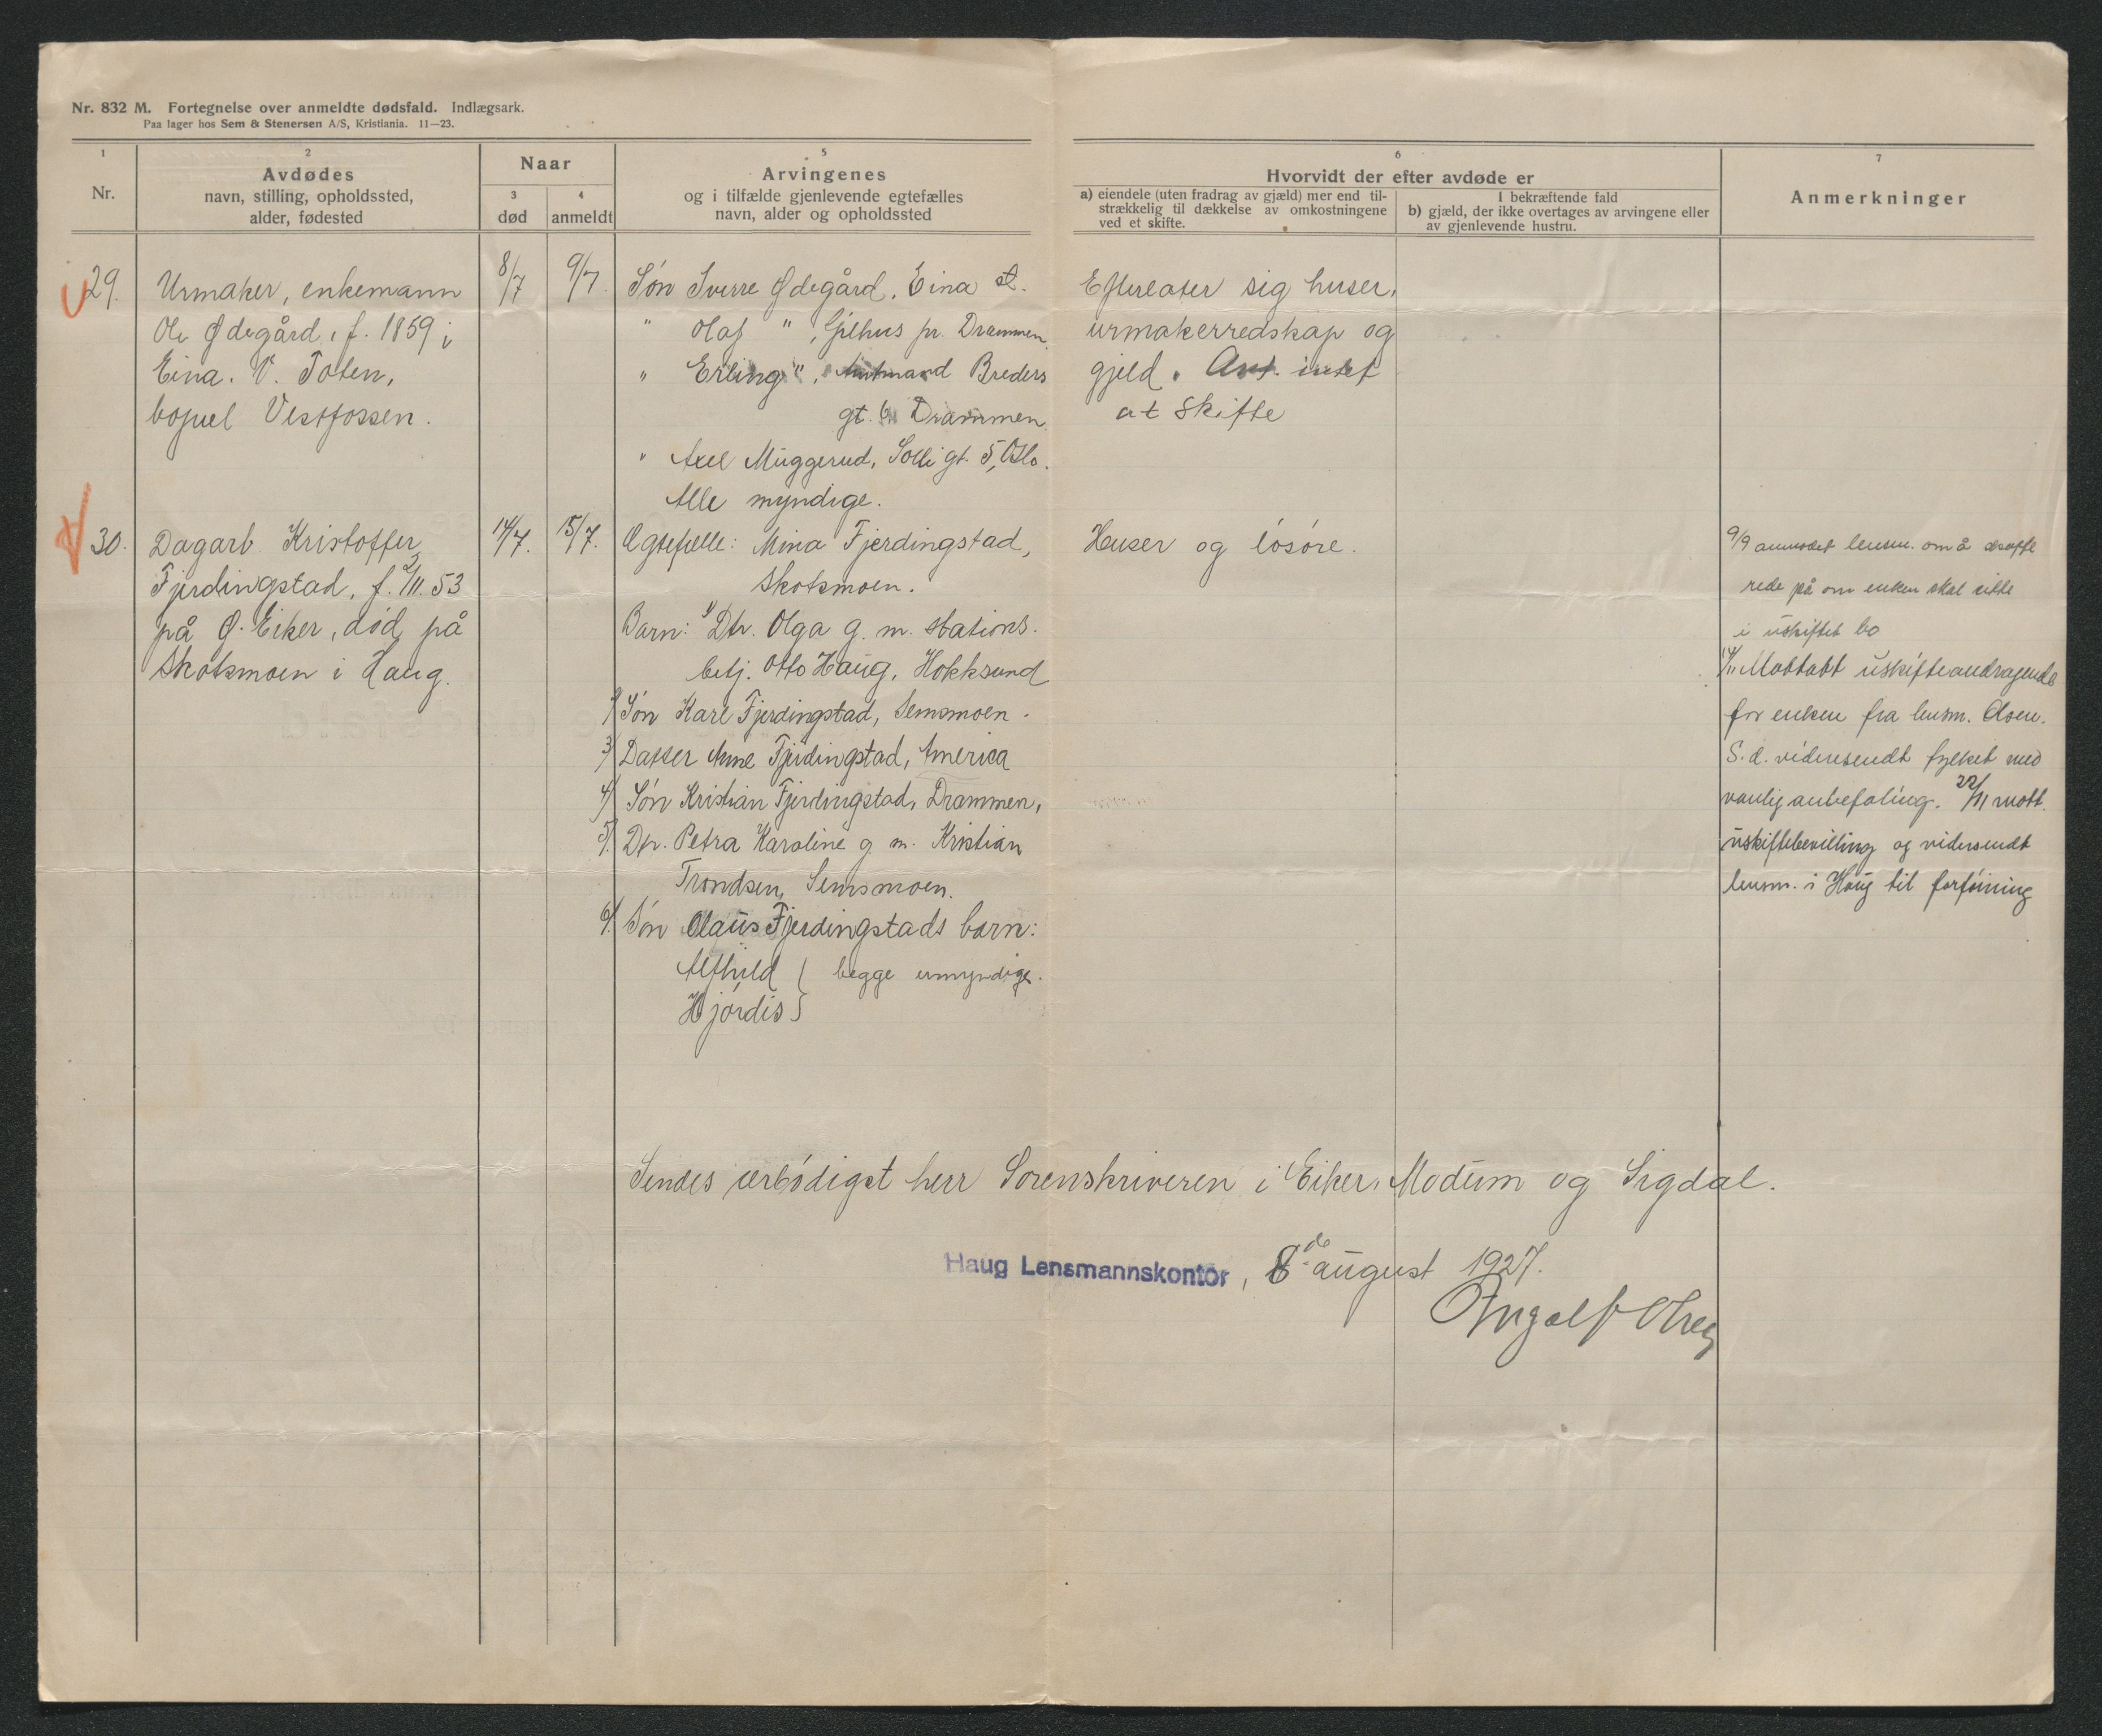 Nr. 832 M. Fortegnelse over anmeldte dødsfald. Indlægsark.
Paa lager hos Sem & Stenersen A/S, Kristiania. 11—23.
1
Nr.
2
Avdødes
navn, stilling, opholdssted,
alder, fødested
Naar
3
død
4
anmeldt
5
Arvingenes
og i tilfælde gjenlevende egtefælles
navn, alder og opholdssted
6
Hvorvidt der efter avdøde er
a) eiendele (uten fradrag av gjæld) mer end til-
strækkelig til dækkelse av omkostningene
ved et skifte.
I bekræftende fald
b) gjæld, der ikke overtages av arvingene eller
av gjenlevende hustru.
7
Anmerkninger
29.
Urmaker, enkemann
Ole Ødegård, f. 1859 i
Eina. V. Toten,
bopæl Vestfossen.
8/7
9/7.
Søn Sverre Ødegård, Eina st.
" Olaf ", Gjilhus pr. Drammen.
" Erling ", Amtmand Breders
gt. 6 Drammen.
" Axel Muggerud, Solligt. 5, Oslo.
Alle myndige.
Efterlater sig huser,
urmakerredskap og
gjeld. Ant. intet
at skifte
30.
Dagarb. Kristoffer
Fjerdingstad, f. 2/11. 53
på Ø. Eiker, død på
Skotsmoen i Haug.
14/7.
15/7.
Egtefelle: Mina Fjerdingstad,
Skotsmoen.
Barn: 1) Dtr. Olga g. m. stations-
betj. Otto Haug, Hokksund
2) Søn Karl Fjerdingstad, Semsmoen.
3) Datter Anne Fjerdingstad, America
4) Søn Kristian Fjerdingstad, Drammen,
5) Dtr. Petra Karoline g. m. Kristian
Trondsen, Semsmoen.
6) Søn Olaus Fjerdingstads barn:
Alfhild } begge umyndige.
Hjørdis }
Huser og løsøre.
9/9 anmodet lensm. om å skaffe
rede på om enken skal sitte
i uskiftet bo
14/11 Mottatt uskifteandragende
for enken fra lensm. Olsen.
S. d. videresendt fylket med
vanlig anbefaling. 22/11 mott.
uskiftebevilling og videresendt
lensm. i Haug til forføining
Sendes ærbødigst herr Sorenskriveren i Eiker, Modum og Sigdal.
Haug Lensmannskontor, 8de august 1927.